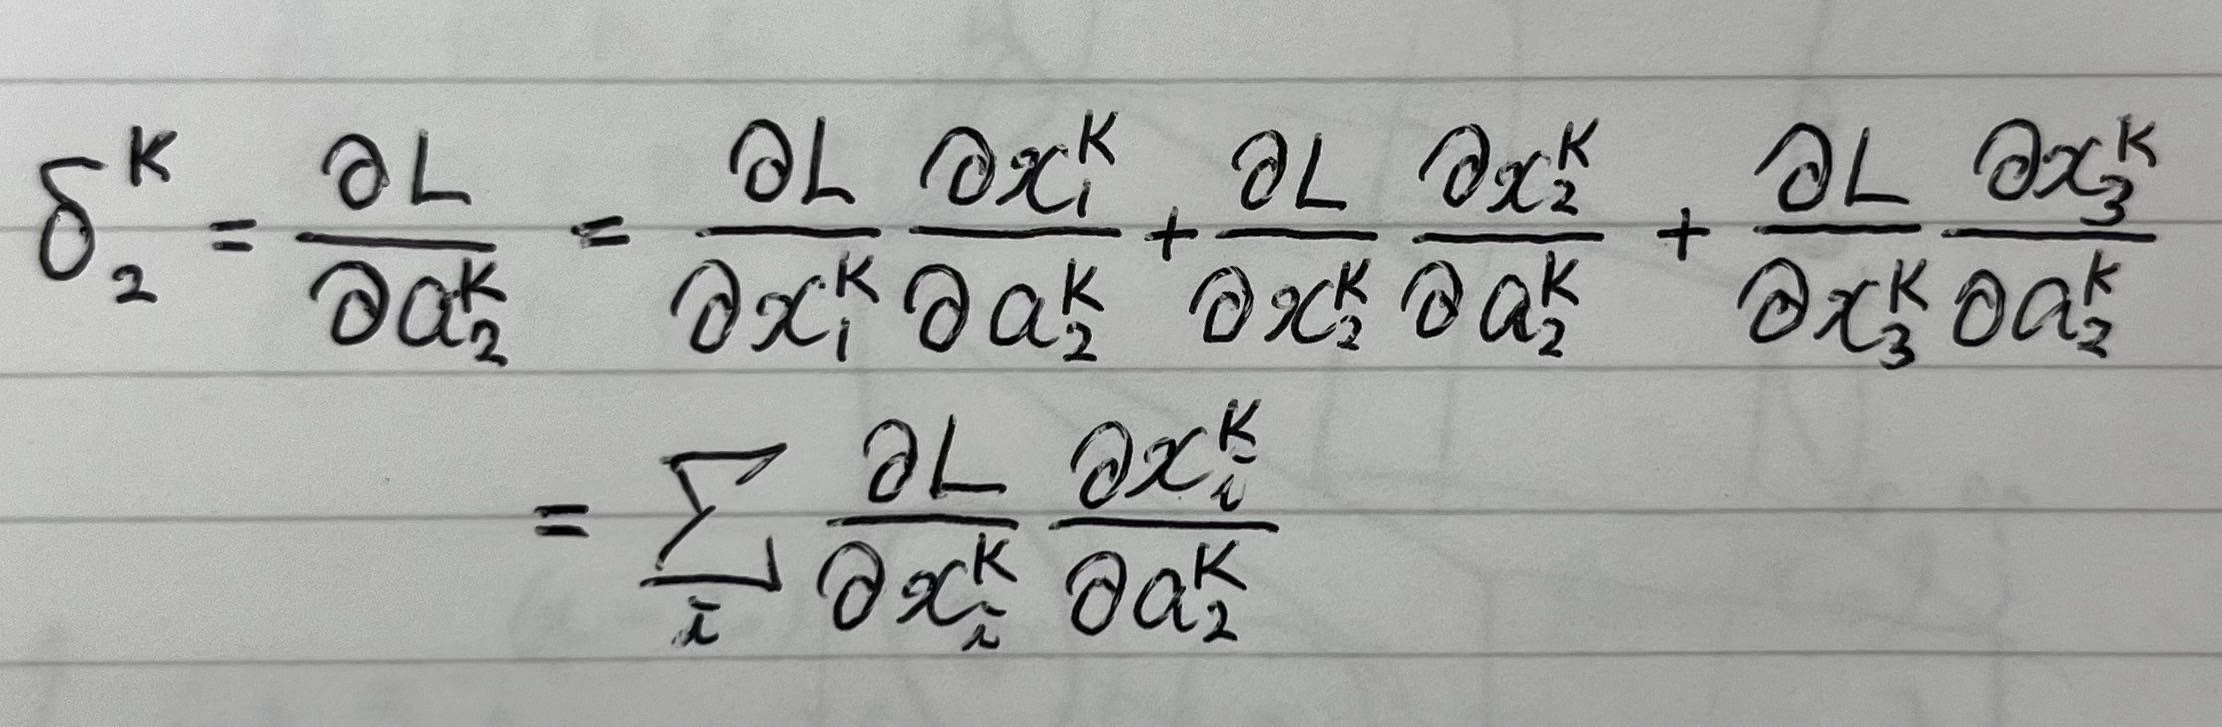 δ₂ᴷ = ∂L/∂a₂ᴷ = ∂L/∂x₁ᴷ ∂x₁ᴷ/∂a₂ᴷ + ∂L/∂x₂ᴷ ∂x₂ᴷ/∂a₂ᴷ + ∂L/∂x₃ᴷ ∂x₃ᴷ/∂a₂ᴷ
= ∑ᵢ ∂L/∂xᵢᴷ ∂xᵢᴷ/∂a₂ᴷ